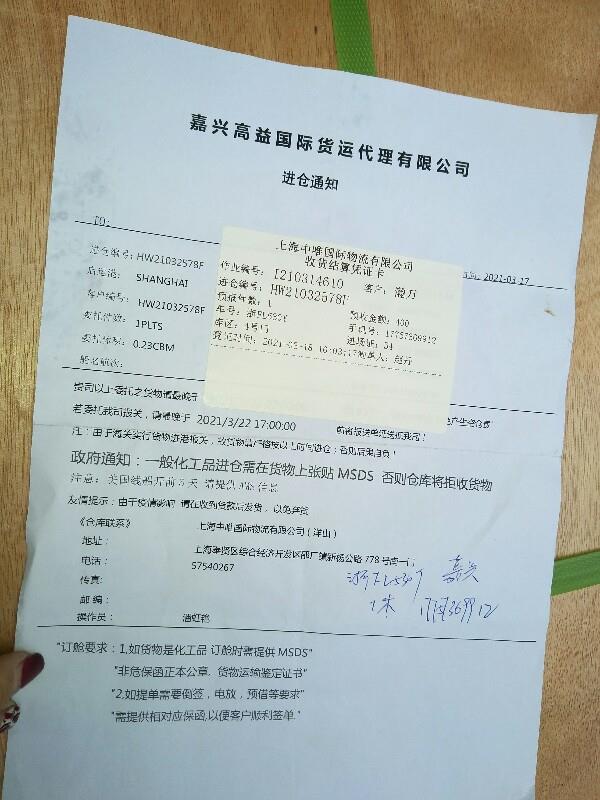 嘉兴高益国际货运代理有限公司
进仓通知
TO:
2021-03-17
进仓编号: HW21032578F
SHANGHAI
客户编号: HW21032578F
委托件数: 1PLTS
委托体积: 0.23CBM
船名航次:
上海中唯国际物流有限公司
收货结算凭证卡
作业编号: I210314610
客户:
进仓编号: HW21032578F
预报件数: 1
预收金额: 400
车号:
手机号:
库区: 4号门
进场证: 54
登记时间:
贵司以上委托之货物请最晚于
若委托我司报关，请最晚于 2021/3/22 17:00:00
注：由于海关实行货物进港报关，
政府通知：一般化工品进仓需在货物上张贴 MSDS 否则仓库将拒收货物
注意：美国线船开前5天 请提供
友情提示：由于疫情影响 请在收到贷款后发货，以免弃货
《仓库联系》
上海中唯国际物流有限公司（洋山）
地址：
上海奉贤区综合经济开发区邵厂镇新杨公路 778 号南一门
电话：
57540267
传真:
邮编:
操作员:
嘉兴
"订舱要求：1,如货物是化工品 订舱时需提供 MSDS"
"非危保函正本公章. 货物运输鉴定证书"
"2,如提单需要倒签，电放，预借等要求"
"需提供相对应保函,以便客户顺利签单."